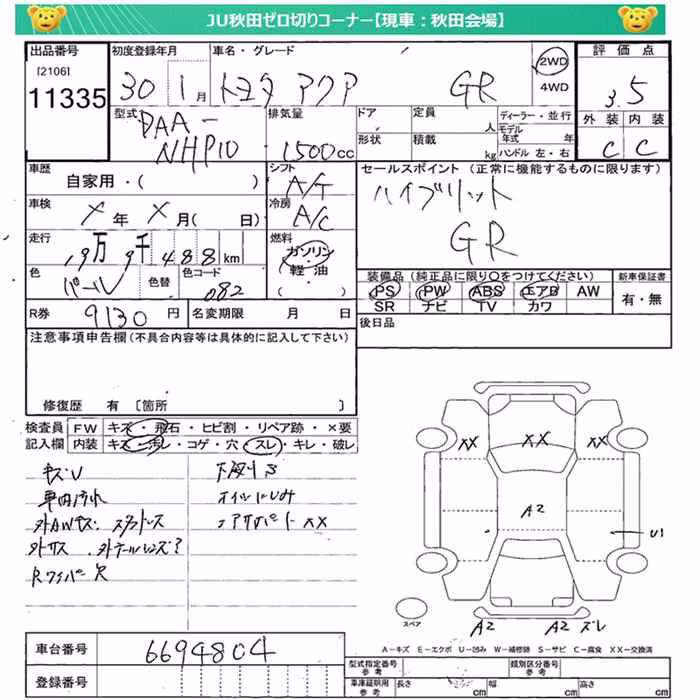 JU秋田ゼロ切りコーナー【現車:秋田会場】
出品番号 初度登録年月 車名・グレード 2WD 評価点
[2106] 11335 30 1月 トヨタ アクア GR 4WD 3.5
型式 排気量 ドア 定員 人 ディーラー・並行 外装 内装
DAA-NHP10 1500cc 形状 積載 kg モデル年式 年 C C
ハンドル 左・右
車歴 シフト セールスポイント(正常に機能するものに限ります)
自家用・( ) A/T ハイブリット
車検 冷房 GR
X年 X月( 日) A/C
走行 燃料
19万9千488km ガソリン
色 色替 色コード 軽・油 装備品(純正品に限り○をつけてください) 新車保証書
パール 082 ・( ) PS PW ABS エアB AW 有・無
SR ナビ TV カワ
R券 9130円 名変期限 月 日 後日品
注意事項申告欄(不具合内容等は具体的に記入して下さい)
修復歴 有 〔箇所 〕
検査員 FW キズ・飛石・ヒビ割・リペア跡・×要
記入欄 内装 キズ・汚レ・コゲ・穴・スレ・キレ・破レ
キズU 下廻りサ
車内汚れ オイルにじみ
外AWキズ・スタットレス コアサポートXX
外サス・外テールレンズ?
Rワイパー欠
XX XX XX
A2
U1
スペア
A2 A2 ズレ
A-キズ E-エクボ U-凹み W-補修跡 S-サビ C-腐食 XX-交換済
車台番号 6694804
登録番号
型式指定番号 参考 類別区分番号 参考
車庫証明用 参考 長さ cm 幅 cm 高さ cm